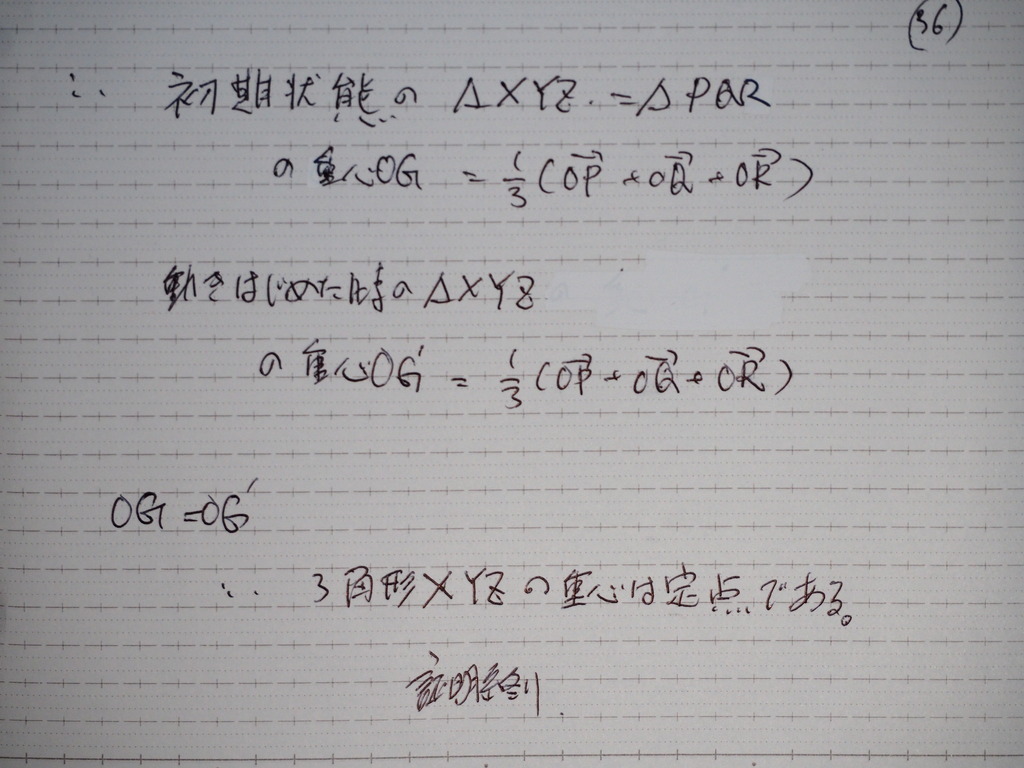 (36)
∴ 初期状態の △XYZ. = △PQR
の重心OG = 1/3 (OP→ + OQ→ + OR→)
動きはじめた時の △XYZ
の重心OG' = 1/3 (OP→ + OQ→ + OR→)
OG = OG'
∴ 3角形XYZの重心は定点である。
証明終り.